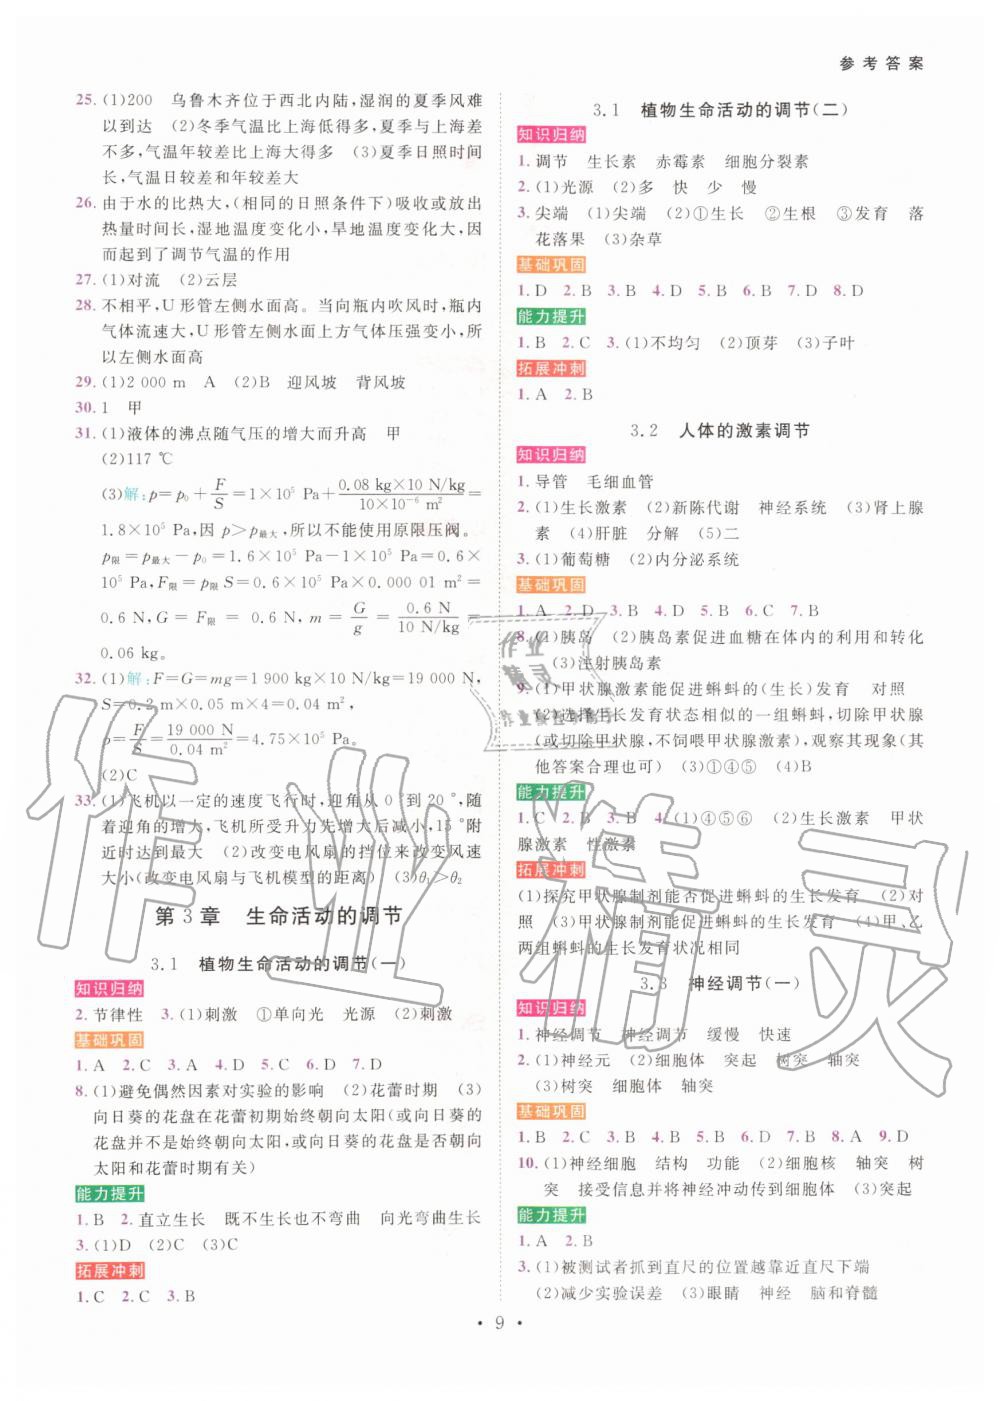 参考答案
25. (1)200　乌鲁木齐位于西北内陆,湿润的夏季风难
以到达　(2)冬季气温比上海低得多,夏季与上海差
不多,气温年较差比上海大　(3)夏季日照时间
长,气温日较差和年较差大
26. 由于水的比热大,(相同的日照条件下)吸收或放出
热量时间长,湿地温度变化小,旱地温度变化大,因
而起到了调节气温的作用
27. (1)对流　(2)云层
28. 不相平,U 形管左侧水面高。当向瓶内吹风时,瓶内
气体流速大,U 形管左侧水面上方气体压强变小,所
以左侧水面高
29. (1)2 000 m　A　(2)B　迎风坡　背风坡
30. 1　甲
31. (1)液体的沸点随气压的增大而升高　甲
(2)117 ℃
(3)解:p=p₀+F/S=1×10⁵ Pa+0.08 kg×10 N/kg/10×10⁻⁶ m²=
1.8×10⁵ Pa,因 p>p最大,所以不能使用原限压阀。
p限=p最大-p₀=1.6×10⁵ Pa-1×10⁵ Pa=0.6×
10⁵ Pa,F限=p限S=0.6×10⁵ Pa×0.000 01 m²=
0.6 N,G=F限=0.6 N,m=G/g=0.6 N/10 N/kg=
0.06 kg。
32. (1)解:F=G=mg=1 900 kg×10 N/kg=19 000 N,
S=0.2 m×0.05 m×4=0.04 m²,
p=F/S=19 000 N/0.04 m²=4.75×10⁵ Pa。
(2)C
33. (1)飞机以一定的速度飞行时,迎角从 0°到 20°,随
着迎角的增大,飞机所受升力先增大后减小,15°附
近时达到最大　(2)改变电风扇的挡位来改变风速
大小(改变电风扇与飞机模型的距离)　(3)θ₁>θ₂
第 3 章　生命活动的调节
3.1　植物生命活动的调节(一)
知识归纳
2. 节律性　3. (1)刺激　①单向光　光源　(2)刺激
基础巩固
1. A　2. C　3. A　4. D　5. D　6. C　7. D
8. (1)避免偶然因素对实验的影响　(2)花蕾时期　(3)
向日葵的花盘在花蕾初期始终朝向太阳(或向日葵的
花盘并不是始终朝向太阳,或向日葵的花盘是否朝向
太阳和花蕾时期有关)
能力提升
1. B　2. 直立生长　既不生长也不弯曲　向光弯曲生长
3. (1)D　(2)C　(3)C
拓展冲刺
1. C　2. C　3. B
3.1　植物生命活动的调节(二)
知识归纳
1. 调节　生长素　赤霉素　细胞分裂素
2. (1)光源　(2)多　快　少　慢
3. 尖端　(1)尖端　(2)①生长　②生根　③发育　落
花落果　(3)杂草
基础巩固
1. D　2. B　3. B　4. D　5. B　6. B　7. D　8. D
能力提升
1. B　2. C　3. (1)不均匀　(2)顶芽　(3)子叶
拓展冲刺
1. A　2. B
3.2　人体的激素调节
知识归纳
1. 导管　毛细血管
2. (1)生长激素　(2)新陈代谢　神经系统　(3)肾上腺
素　(4)肝脏　分解　(5)二
3. (1)葡萄糖　(2)内分泌系统
基础巩固
1. A　2. D　3. B　4. B　5. B　6. C　7. B
8. (1)胰岛　(2)胰岛素促进血糖在体内的利用和转化
(3)注射胰岛素
9. (1)甲状腺激素能促进蝌蚪的(生长)发育　对照
(2)选择生长发育状态相似的一组蝌蚪,切除甲状腺
(或切除甲状腺,不饲喂甲状腺激素),观察其现象(其
他答案合理也可)　(3)①④⑤　(4)B
能力提升
1. C　2. B　3. B　4. (1)④⑤⑥　(2)生长激素　甲状
腺激素　性激素
拓展冲刺
(1)探究甲状腺制剂能否促进蝌蚪的生长发育　(2)对
照　(3)甲状腺制剂能促进蝌蚪的生长发育　(4)甲、乙
两组蝌蚪的生长发育状况相同
3.3　神经调节(一)
知识归纳
1. 神经调节　神经调节　缓慢　快速
2. (1)神经元　(2)细胞体　突起　树突　轴突
(3)树突　细胞体　轴突
基础巩固
1. B　2. C　3. D　4. C　5. D　6. B　7. B　8. A　9. D
10. (1)神经细胞　结构　功能　(2)细胞核　轴突　树
突　接受信息并将神经冲动传到细胞体　(3)突起
能力提升
1. A　2. B
3. (1)被测试者抓到直尺的位置越靠近直尺下端
(2)减少实验误差　(3)眼睛　神经　脑和脊髓
• 9 •
作业精灵